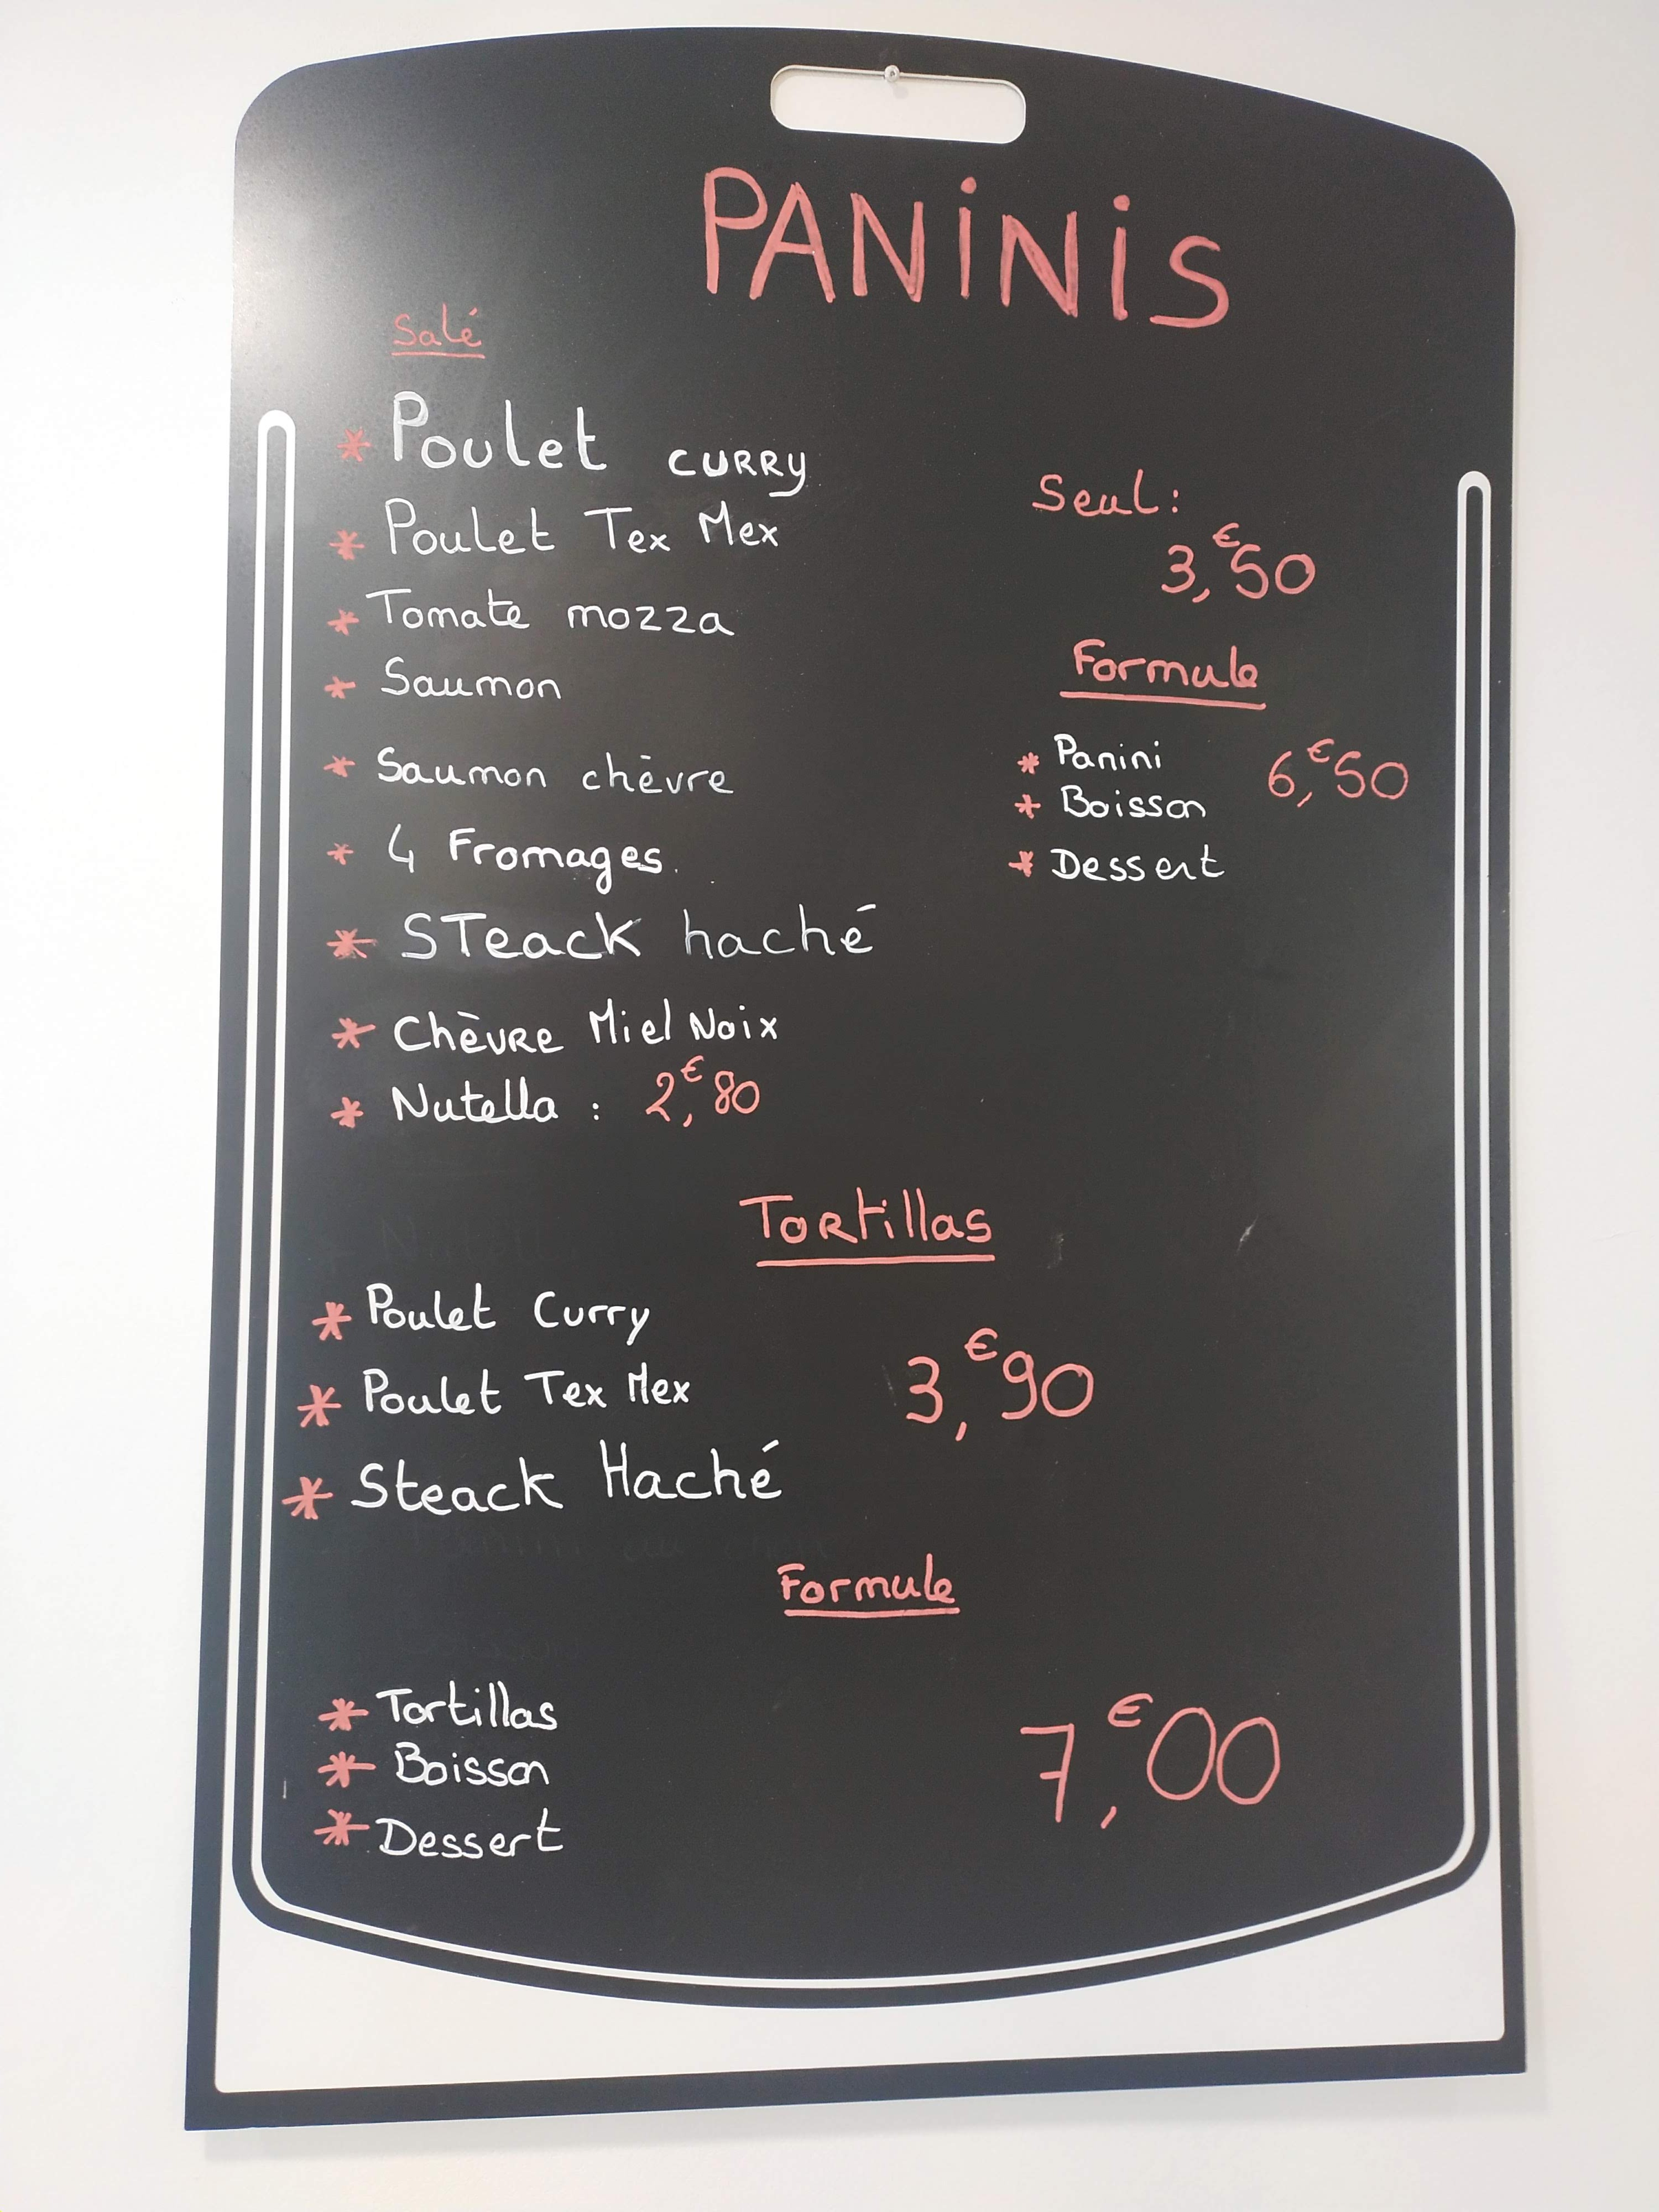 PANINIS
Salé
* Poulet CURRY
* Poulet Tex Mex
* Tomate mozza
* Saumon
* Saumon chèvre
* 4 Fromages.
* STeack haché
* Chèvre Miel Noix
* Nutella : 2,€80
Seul :
3,€50
Formule
* Panini 6,€50
* Boisson
* Dessert
Tortillas
* Poulet Curry
* Poulet Tex Mex
3,€90
* Steack Haché
Formule
* Tortillas
* Boisson
* Dessert
7,€00